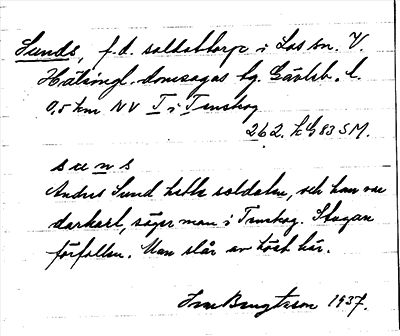 Sunds, f.d. soldattorp i Los sn. V.
Hälsingl. domsagas tg. Gävleb. l.
0,5 km NV T i Tenskog
262. h G 83 SM.
s u n s
Anders Sund hette soldaten, och han var
darkarl, säger man i Tenskog. Stugan
förfallen. Man slår av höst här.
Bengtsson 1937.